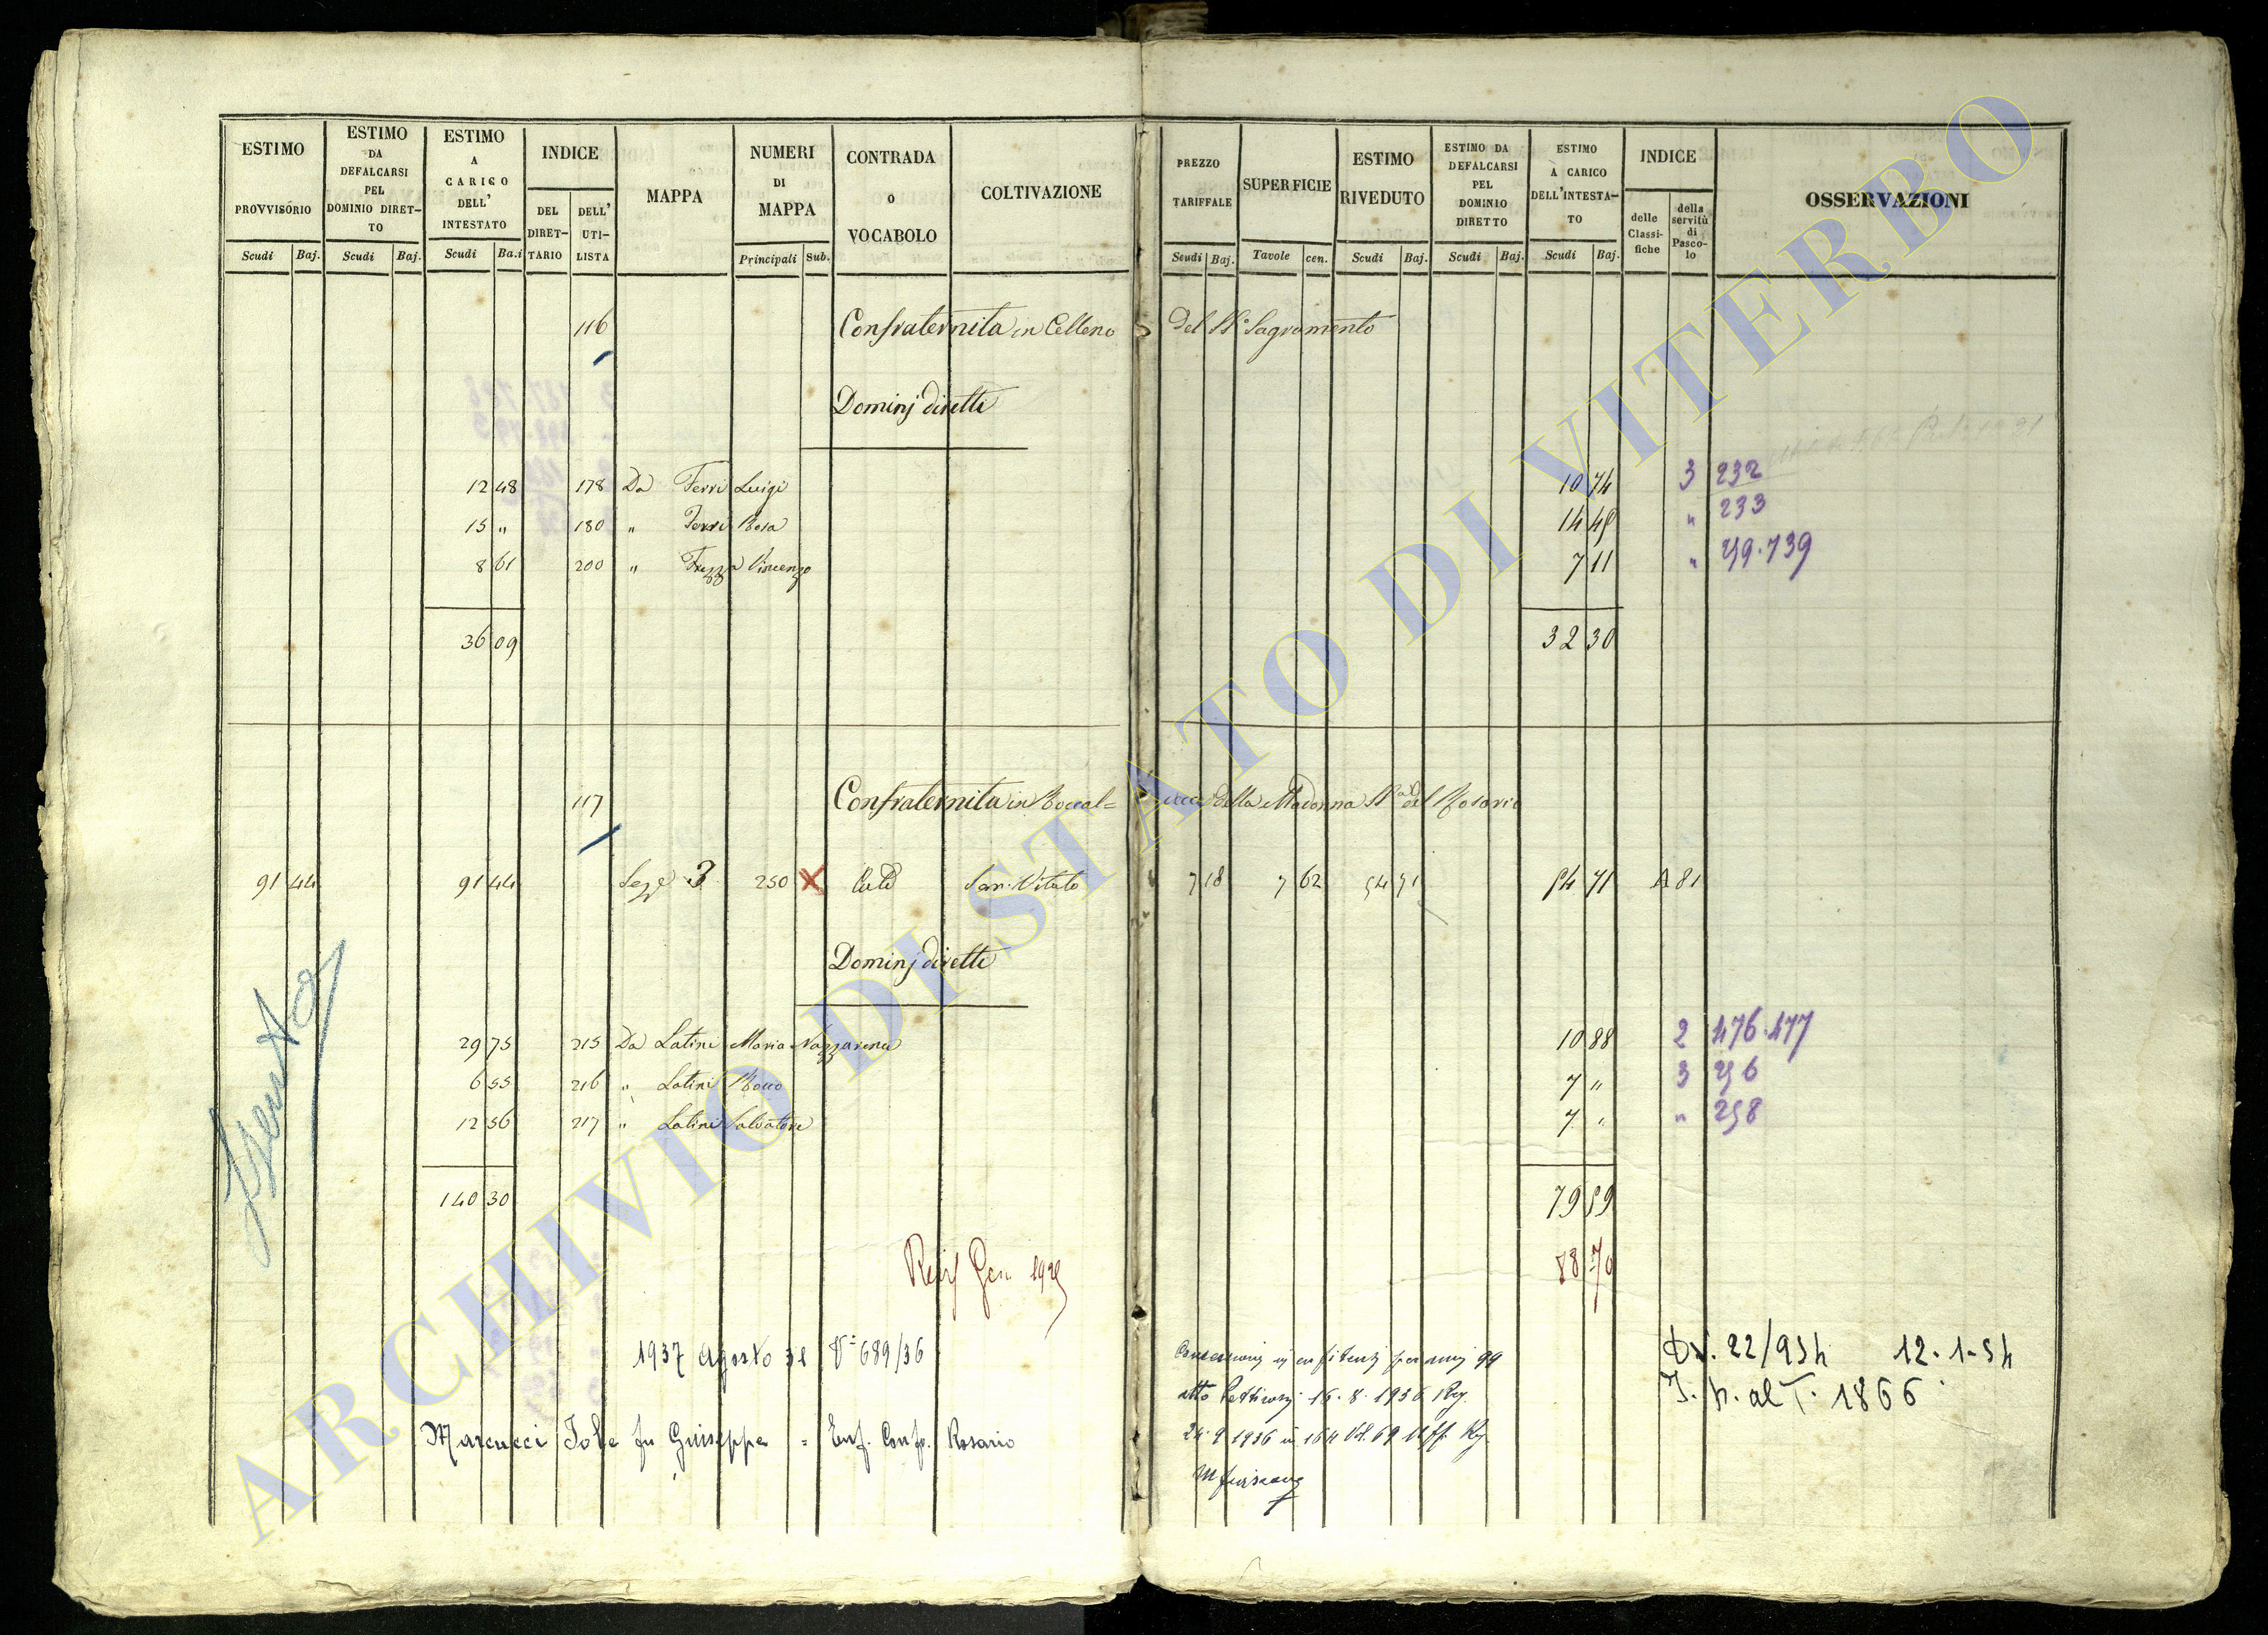 ESTIMO PROVVISORIO Scudi Baj.
ESTIMO DA DEFALCARSI PEL DOMINIO DIRETTO Scudi Baj.
ESTIMO A CARICO DELL' INTESTATO Scudi Ba.i
INDICE DEL DIRETTARIO DELL' UTILISTA
MAPPA
NUMERI DI MAPPA Principali Sub.
CONTRADA o VOCABOLO
COLTIVAZIONE
PREZZO TARIFFALE Scudi Baj.
SUPERFICIE Tavole cen.
ESTIMO RIVEDUTO Scudi Baj.
ESTIMO DA DEFALCARSI PEL DOMINIO DIRETTO Scudi Baj.
ESTIMO A CARICO DELL'INTESTATO Scudi Baj.
INDICE delle Classifiche della servitù di Pascolo
OSSERVAZIONI
116 Confraternita in Celleno del SS.º Sagramento
Dominj diretti
12 48 178 Da Ferri Luigi 10 74 3 232
15 " 180 " Ferri Rosa 14 45 " 233
8 61 200 " Frezza Vincenzo 7 11 " 259.739
36 09 32 30
117 Confraternita in Roccal= vecce della Madonna SS.a del Rosario
91 44 91 44 Sezze 3 250 X Sem. Vitato 7 18 7 62 54 71 54 71 A 81
Dominj diretti
29 75 215 Da Latini Maria Nazzarena 10 88 2 476.477
6 55 216 " Latini Rocco 7 " 3 256
12 56 217 " Latini Salvatore 7 " " 258
140 30 79 59
Esente
Gen 88 70
1937 Agosto 31 V. 689/36
Marcucci Iole fu Giuseppe = Enf. Confr. Rosario
Concessione in enfiteusi per anni 99
atto 16.8.1936 Reg.
24.9.1936 n 164 Vol. 69 Uff. Reg.
22/954 12.1.54
al T. 1866
ARCHIVIO DI STATO DI VITERBO